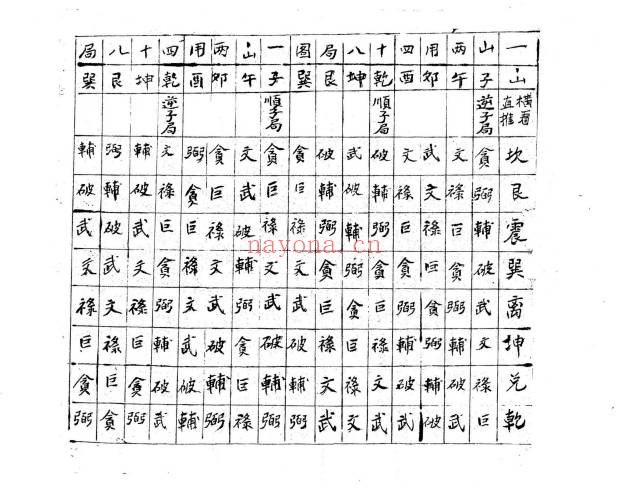 一山橫看直推坎艮震巽离坤兌乾
山子逆子局貪弼輔破武文禄巨
两午文禄巨貪弼輔破武
用卯武文禄巨貪弼輔破
四酉文禄巨貪弼輔破武
十乾順子局破輔弼貪巨禄文武
八坤武破輔弼貪巨禄文
局艮破輔弼貪巨禄文武
图巽貪巨禄文武破輔弼
一子順子局貪巨禄文武破輔弼
山午文武破輔弼貪巨禄
两卯貪巨禄文武破輔弼
用酉弼貪巨禄文武破輔
四乾逆子局文禄巨貪弼輔破武
十坤輔破武文禄巨貪弼
八艮弼輔破武文禄巨貪
局巽輔破武文禄巨貪弼
nayona.cn